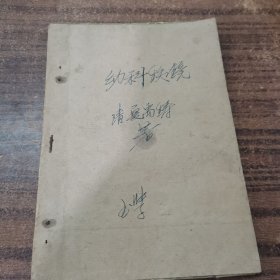 幼科铁镜
清夏禹铸
著